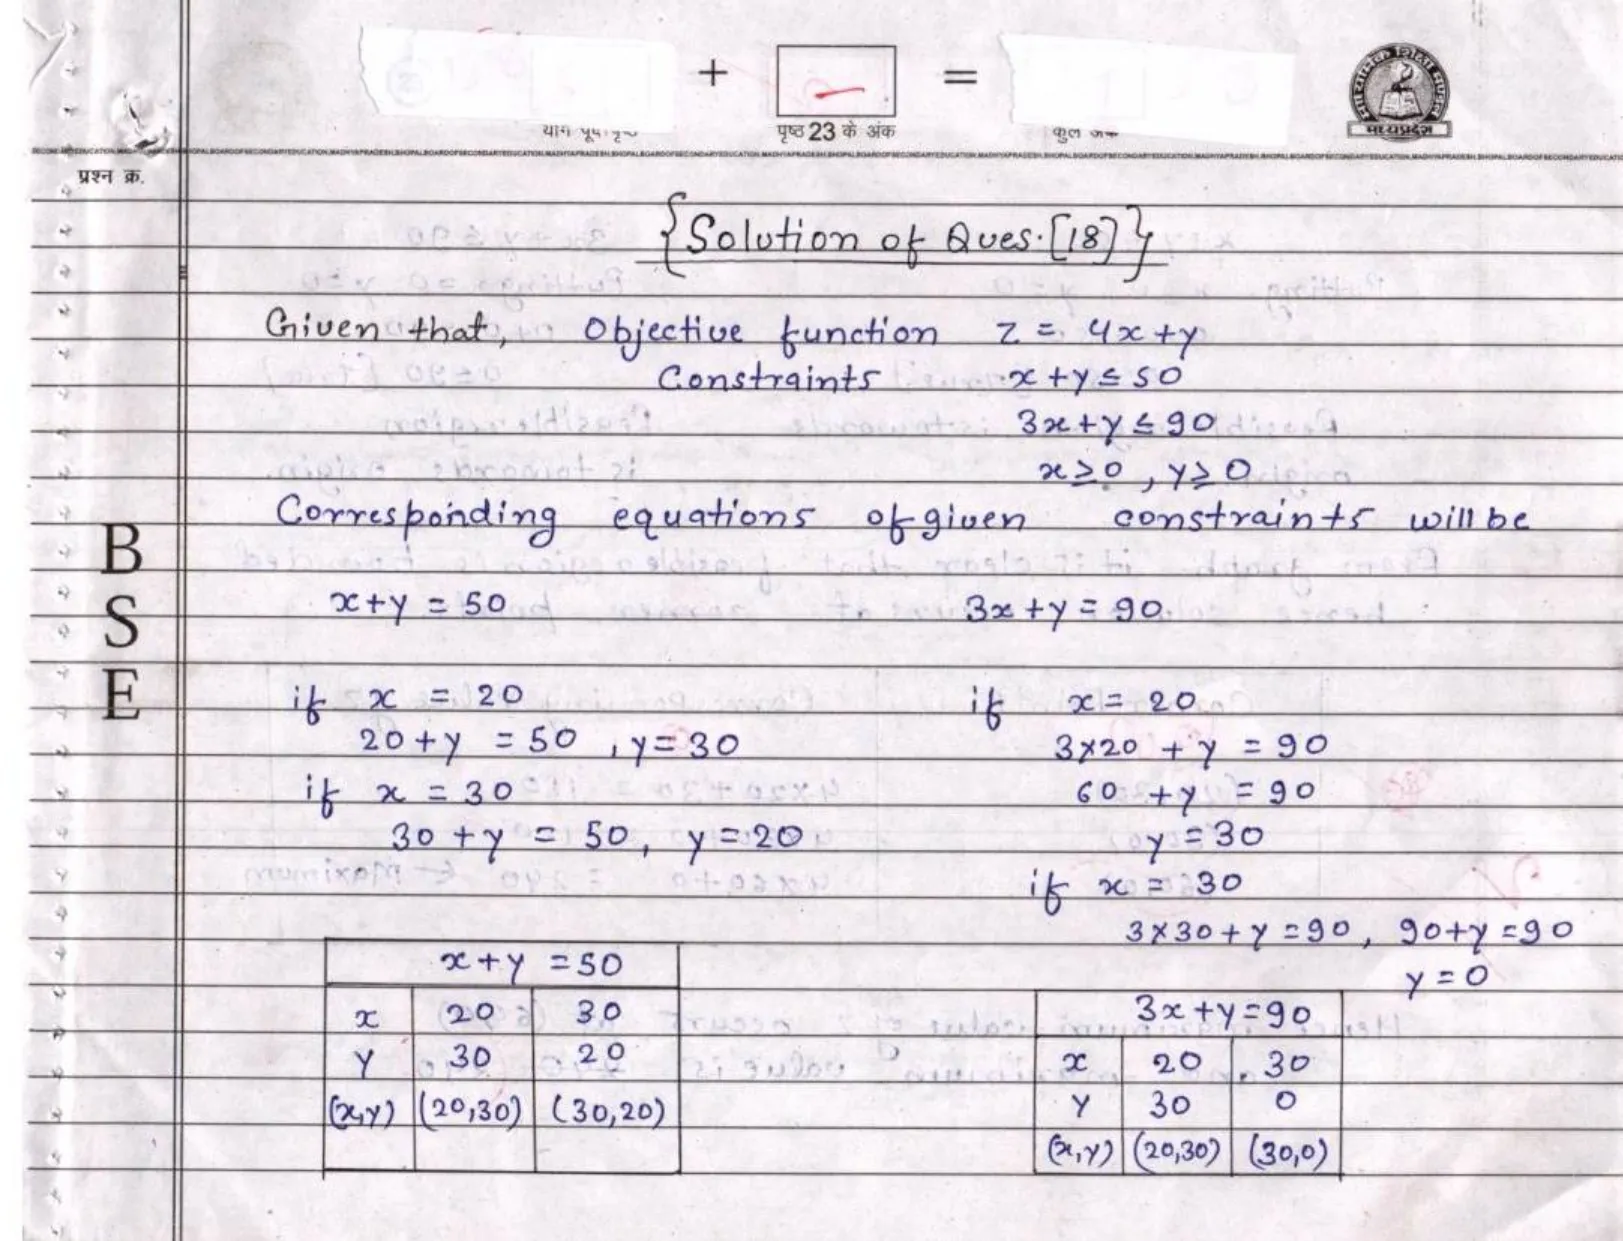 + =
पृष्ठ 23 के अंक
मध्यप्रदेश
प्रश्न क्र.
{Solution of Ques.[18]}
Given that, Objective function z = 4x+y
Constraints x+y≤50
3x+y≤90
x≥0, y≥0
Corresponding equations of given constraints will be
x+y = 50 3x+y = 90
if x = 20 if x = 20
20+y = 50, y=30 3×20 + y = 90
if x = 30 60 + y = 90
30 + y = 50, y=20 y=30
if x = 30
3×30+y=90, 90+y=90
y=0
x+y = 50
x 20 30
y 30 20
(x,y) (20,30) (30,20)
3x+y=90
x 20 30
y 30 0
(x,y) (20,30) (30,0)
B
S
E